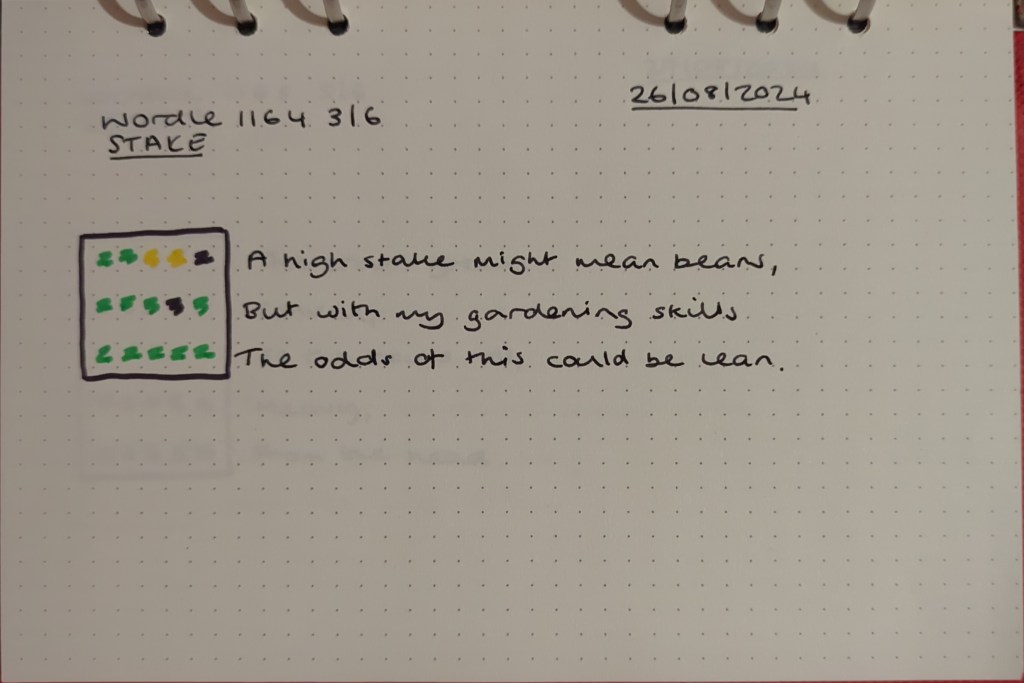 26/08/2024
Wordle 1164 3/6
STAKE
A high stake might mean beans,
But with my gardening skills
The odds of this could be lean.